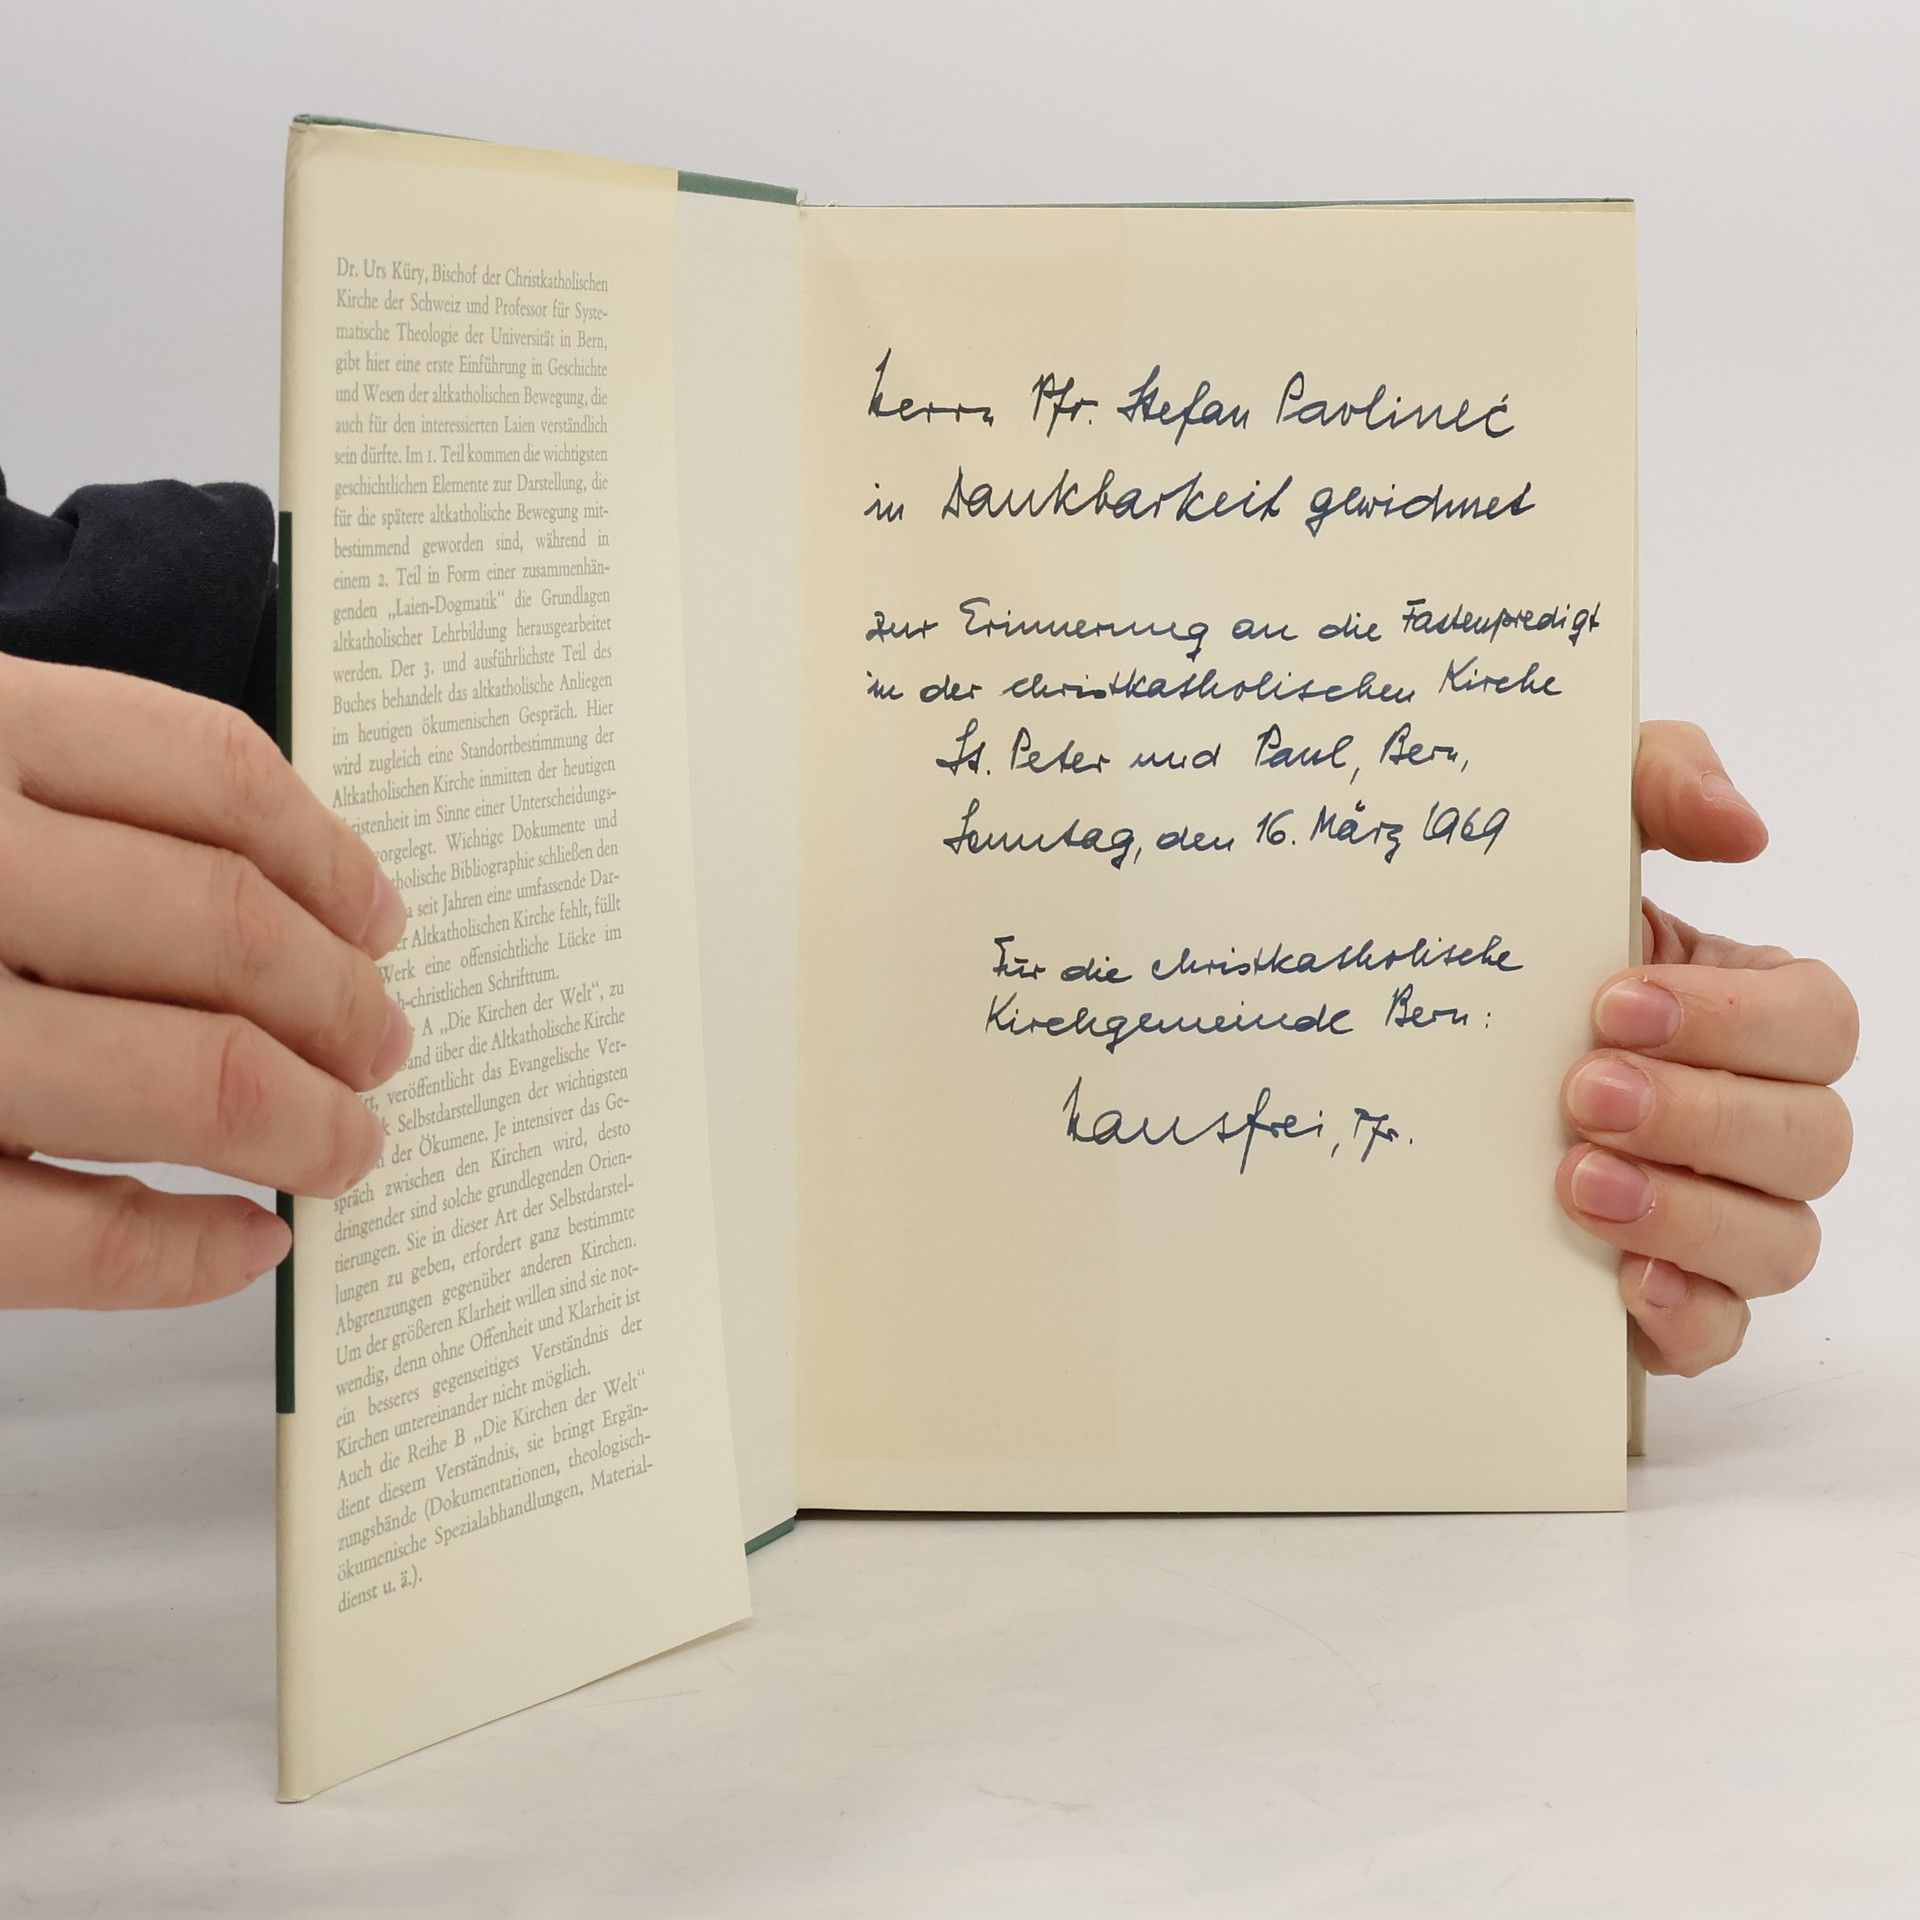 Dr. Urs Küry, Bischof der Christkatholischen
Kirche der Schweiz und Professor für Syste-
matische Theologie der Universität in Bern,
gibt hier eine erste Einführung in Geschichte
und Wesen der altkatholischen Bewegung, die
auch für den interessierten Laien verständlich
sein dürfte. Im 1. Teil kommen die wichtigsten
geschichtlichen Elemente zur Darstellung, die
für die spätere altkatholische Bewegung mit-
bestimmend geworden sind, während in
einem 2. Teil in Form einer zusammenhän-
genden „Laien-Dogmatik“ die Grundlagen
altkatholischer Lehrbildung herausgearbeitet
werden. Der 3. und ausführlichste Teil des
Buches behandelt das altkatholische Anliegen
im heutigen ökumenischen Gespräch. Hier
wird zugleich eine Standortbestimmung der
Altkatholischen Kirche inmitten der heutigen
istenheit im Sinne einer Unterscheidungs-
vorgelegt. Wichtige Dokumente und
tholische Bibliographie schließen den
a seit Jahren eine umfassende Dar-
er Altkatholischen Kirche fehlt, füllt
Werk eine offensichtliche Lücke im
h-christlichen Schrifttum.
A „Die Kirchen der Welt“, zu
and über die Altkatholische Kirche
rt, veröffentlicht das Evangelische Ver-
k Selbstdarstellungen der wichtigsten
n der Ökumene. Je intensiver das Ge-
spräch zwischen den Kirchen wird, desto
dringender sind solche grundlegenden Orien-
tierungen. Sie in dieser Art der Selbstdarstel-
lungen zu geben, erfordert ganz bestimmte
Abgrenzungen gegenüber anderen Kirchen.
Um der größeren Klarheit willen sind sie not-
wendig, denn ohne Offenheit und Klarheit ist
ein besseres gegenseitiges Verständnis der
Kirchen untereinander nicht möglich.
Auch die Reihe B „Die Kirchen der Welt“
dient diesem Verständnis, sie bringt Ergän-
zungsbände (Dokumentationen, theologisch-
ökumenische Spezialabhandlungen, Material-
dienst u. ä.).
Herrn Pfr. Stefan Pavlineć
in Dankbarkeit gewidmet
zur Erinnerung an die Fastenpredigt
in der christkatholischen Kirche
St. Peter und Paul, Bern,
Sonntag, den 16. März 1969
Für die christkatholische
Kirchgemeinde Bern:
Hausfrei, Pfr.